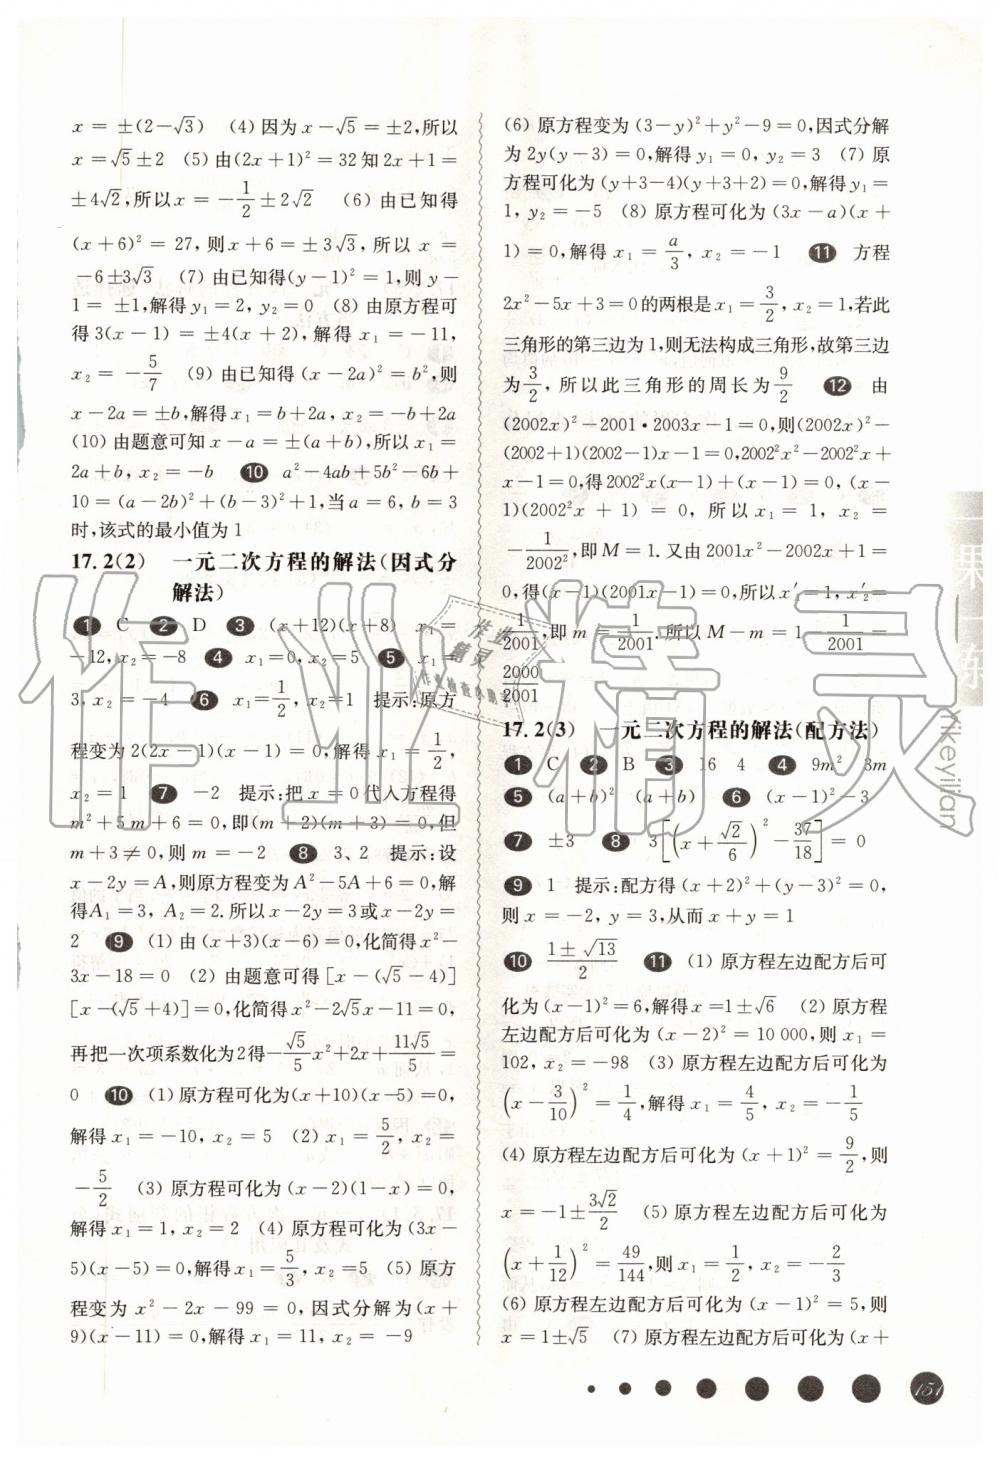 x = ±(2-√3) (4) 因为 x-√5 = ±2,所以
x = √5 ± 2 (5) 由(2x+1)² = 32 知 2x+1 =
±4√2,所以x = -1/2 ± 2√2 (6) 由已知得
(x+6)² = 27, 则 x+6 = ±3√3, 所以 x =
-6±3√3 (7) 由已知得(y-1)² = 1,则 y-
1 = ±1,解得 y₁ = 2, y₂ = 0 (8) 由原方程可
得 3(x-1) = ±4(x+2), 解得 x₁ = -11,
x₂ = -5/7 (9) 由已知得 (x-2a)² = b²,则
x-2a = ±b,解得 x₁ = b+2a, x₂ = -b+2a
(10) 由题意可知 x-a = ±(a+b),所以 x₁ =
2a+b, x₂ = -b 10 a²-4ab+5b²-6b+
10 = (a-2b)²+(b-3)²+1,当 a = 6, b = 3
时,该式的最小值为 1
17.2(2) 一元二次方程的解法(因式分
解法)
1 C 2 D 3 (x+12)(x+8) x₁ =
-12, x₂ = -8 4 x₁=0, x₂=5 5 x₁ =
3, x₂ = -4 6 x₁=1/2, x₂=1 提示:原方
程变为 2(2x-1)(x-1) = 0, 解得 x₁ = 1/2,
x₂ = 1 7 -2 提示:把 x = 0 代入方程得
m²+5m+6 = 0,即(m+2)(m+3) = 0,但
m+3 ≠ 0,则 m = -2 8 3、2 提示:设
x-2y = A,则原方程变为 A²-5A+6 = 0,解
得A₁ = 3, A₂ = 2.所以 x-2y = 3或x-2y =
2 9 (1) 由 (x+3)(x-6) = 0,化简得 x²-
3x-18 = 0 (2) 由题意可得 [x-(√5-4)]
[x-(√5+4)] = 0,化简得 x²-2√5x-11 = 0,
再把一次项系数化为2得-√5/5x²+2x+11√5/5 =
0 10 (1) 原方程可化为(x+10)(x-5)=0,
解得 x₁ = -10, x₂ = 5 (2) x₁ = 5/2, x₂ =
-5/2 (3) 原方程可化为 (x-2)(1-x) = 0,
解得 x₁ = 1, x₂ = 2 (4) 原方程可化为 (3x-
5)(x-5) = 0,解得 x₁ = 5/3, x₂ = 5 (5) 原方
程变为 x²-2x-99 = 0, 因式分解为 (x+
9)(x-11) = 0,解得 x₁ = 11, x₂ = -9
(6) 原方程变为 (3-y)²+y²-9 = 0,因式分解
为 2y(y-3) = 0,解得 y₁ = 0, y₂ = 3 (7) 原
方程可化为 (y+3-4)(y+3+2) = 0,解得 y₁ =
1, y₂ = -5 (8) 原方程可化为 (3x-a)(x+
1) = 0, 解得 x₁ = a/3, x₂ = -1 11 方程
2x²-5x+3 = 0 的两根是 x₁ = 3/2, x₂ = 1,若此
三角形的第三边为 1,则无法构成三角形,故第三边
为 3/2, 所以此三角形的周长为 9/2 12 由
(2002x)²-2001·2003x-1 = 0,则(2002x)²-
(2002+1)(2002-1)x-1 = 0,2002²x²-2002²x+
x-1 = 0,得 2002²x(x-1)+(x-1) = 0, (x-
1)(2002²x + 1) = 0, 所以 x₁ = 1, x₂ =
-1/2002²,即 M = 1. 又由 2001x²-2002x+1 =
0,得(x-1)(2001x-1) = 0,所以 x₁′ = 1, x₂′ =
1/2001,即 m = 1/2001.所以 M-m = 1-1/2001 =
2000/2001
17.2(3) 一元二次方程的解法(配方法)
1 C 2 B 3 16 4 4 9m² 3m
5 (a+b)² (a+b) 6 (x-1)²-3
7 ±3 8 3[(x+√2/6)²-37/18] = 0
9 1 提示:配方得 (x+2)²+(y-3)² = 0,
则 x = -2, y = 3,从而 x+y = 1
10 (1±√13)/2 11 (1) 原方程左边配方后可
化为 (x-1)² = 6,解得 x = 1±√6 (2) 原方程
左边配方后可化为 (x-2)² = 10 000,则 x₁ =
102, x₂ = -98 (3) 原方程左边配方后可化为
(x-3/10)² = 1/4,解得 x₁ = 4/5, x₂ = -1/5
(4) 原方程左边配方后可化为 (x+1)² = 9/2,则
x = -1±3√2/2 (5) 原方程左边配方后可化为
(x+1/12)² = 49/144,则 x₁ = 1/2, x₂ = -2/3
(6) 原方程左边配方后可化为 (x-1)² = 5,则
x = 1±√5 (7) 原方程左边配方后可化为 (x+
151
作业精灵
Yikeyilian